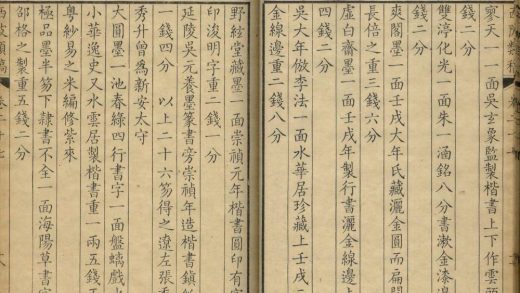 寥天一一面吳玄象監製楷書上下作雲
錢二分
雙渟化光一面朱一涵銘八分書漱金漆邊
錢二分
爽閣墨一面壬戌大年氏藏灑金圓而扁
長倍之重三錢六分
虛白齋墨一面壬戌年製行書灑金線邊
四錢二分
吳大年倣李法一面水華居珍藏上壬戌二
金線邊重二錢八分
野絃堂藏墨一面崇禎元年楷書圓印有
印浚明字重二錢一分
延陵吳元養墨篆書旁崇禎年造楷書鎮
一錢四分 以上二十六笏得之遼左張
秀升曾為新安太守
大圓墨一池春綠四行書字一面盤螭戲
小華逸史又水雲居製楷書重一兩五錢
粵紗易之米編修紫來
極品墨半笏下隸書不全一面海陽草書
邵格之製重五錢二分